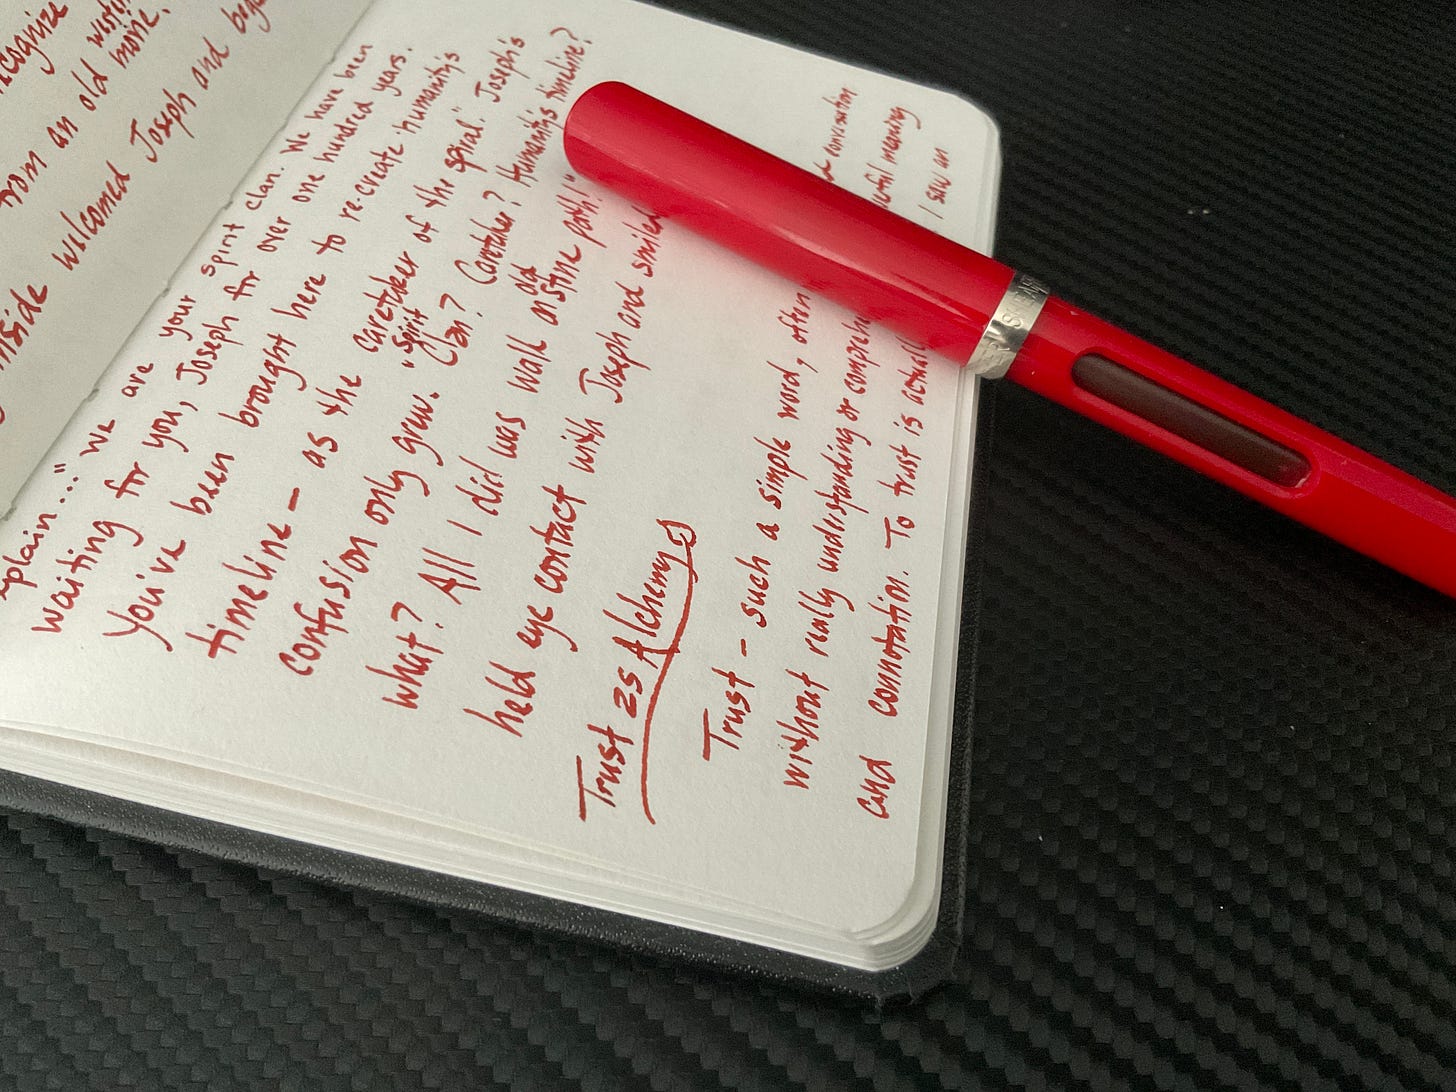 western
from an old movie.
inside welcomed Joseph and
plain..." We are your spirit clan. We have been
waiting for you, Joseph for over one hundred years.
You've been brought here to re-create humanity's
timeline – as the caretaker of the spiral." Joseph's
confusion only grew. "Spirit Clan? Caretaker? Humanity's timeline?
what? All I did was walk an old stone path!"
held eye contact with Joseph and smiled
Trust as Alchemy
Trust – such a simple word, often conversation
without really understanding or meaning
and connotation. To trust is I saw an